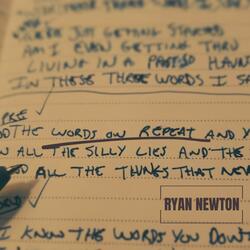 JUST GETTING STARTED
AM I EVEN GETTING THRU
LIVING IN A PAST SO HAUN
IN THESE THREE WORDS I SA
PRE
THE WORDS ON REPEAT AND
ALL THE SILLY LIES AND THE
ALL THE THINGS THAT NEV
RYAN NEWTON
I KNOW THE WORDS YOU DON'T